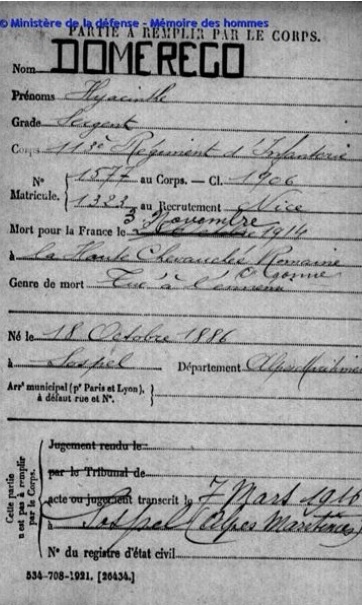 © Ministère de la défense - Mémoire des hommes
PARTIE A REMPLIR PAR LE CORPS.
Nom DOMEREGO
Prénoms Hyacinthe
Grade Sergent
Corps 113e Régiment d'Infanterie
N° Matricule. { 1577 au Corps. — Cl. 1906
1323 au Recrutement Nice
3 Novembre
Mort pour la France le 1914
à la Haute Chevauchée Romaine
Genre de mort Tué à l'ennemi
Né le 18 Octobre 1886
à Sospel Département Alpes Maritimes
Arrt municipal (pr Paris et Lyon), à défaut rue et N°. }
Cette partie n'est pas à remplir par le Corps.
Jugement rendu le
par le Tribunal de
acte ou jugement transcrit le 7 Mars 1916
à Sospel (Alpes Maritimes)
N° du registre d'état civil
534-708-1921. [26434.]